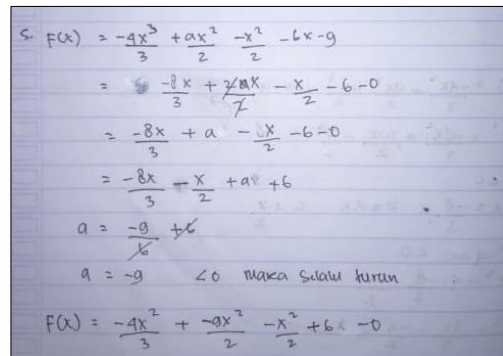 5. F(x) = -4x³/3 + ax²/2 - x²/2 - 6x - 9
= -8x/3 + 2ax/2 - x/2 - 6 - 0
= -8x/3 + a - x/2 - 6 - 0
= -8x/3 - x/2 + a + 6
a = -9/6 + 6
a = -9 <0 maka selalu turun
F(x) = -4x²/3 + -9x²/2 - x²/2 + 6x - 0